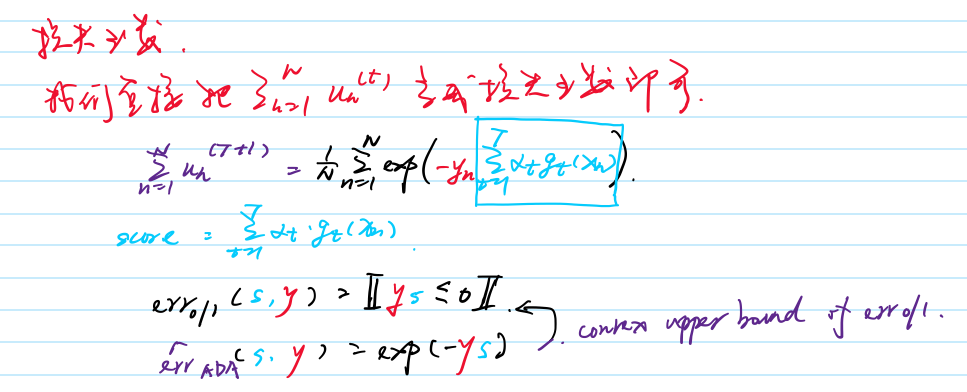 损失函数.
我们直接把 \sum_{n=1}^{N} u_n^{(t)} 当成损失函数即可.
\sum_{n=1}^{N} u_n^{(T+1)} = \frac{1}{N} \sum_{n=1}^{N} exp(-y_n \sum_{t=1}^{T} α_t g_t(x_n)).
score = \sum_{t=1}^{T} α_t · g_t(x_n).
err_{0/1}(s,y) = ⟦ys ≤ 0⟧.
\hat{err}_{ADA}(s,y) = exp(-ys) convex upper bound of err0/1.